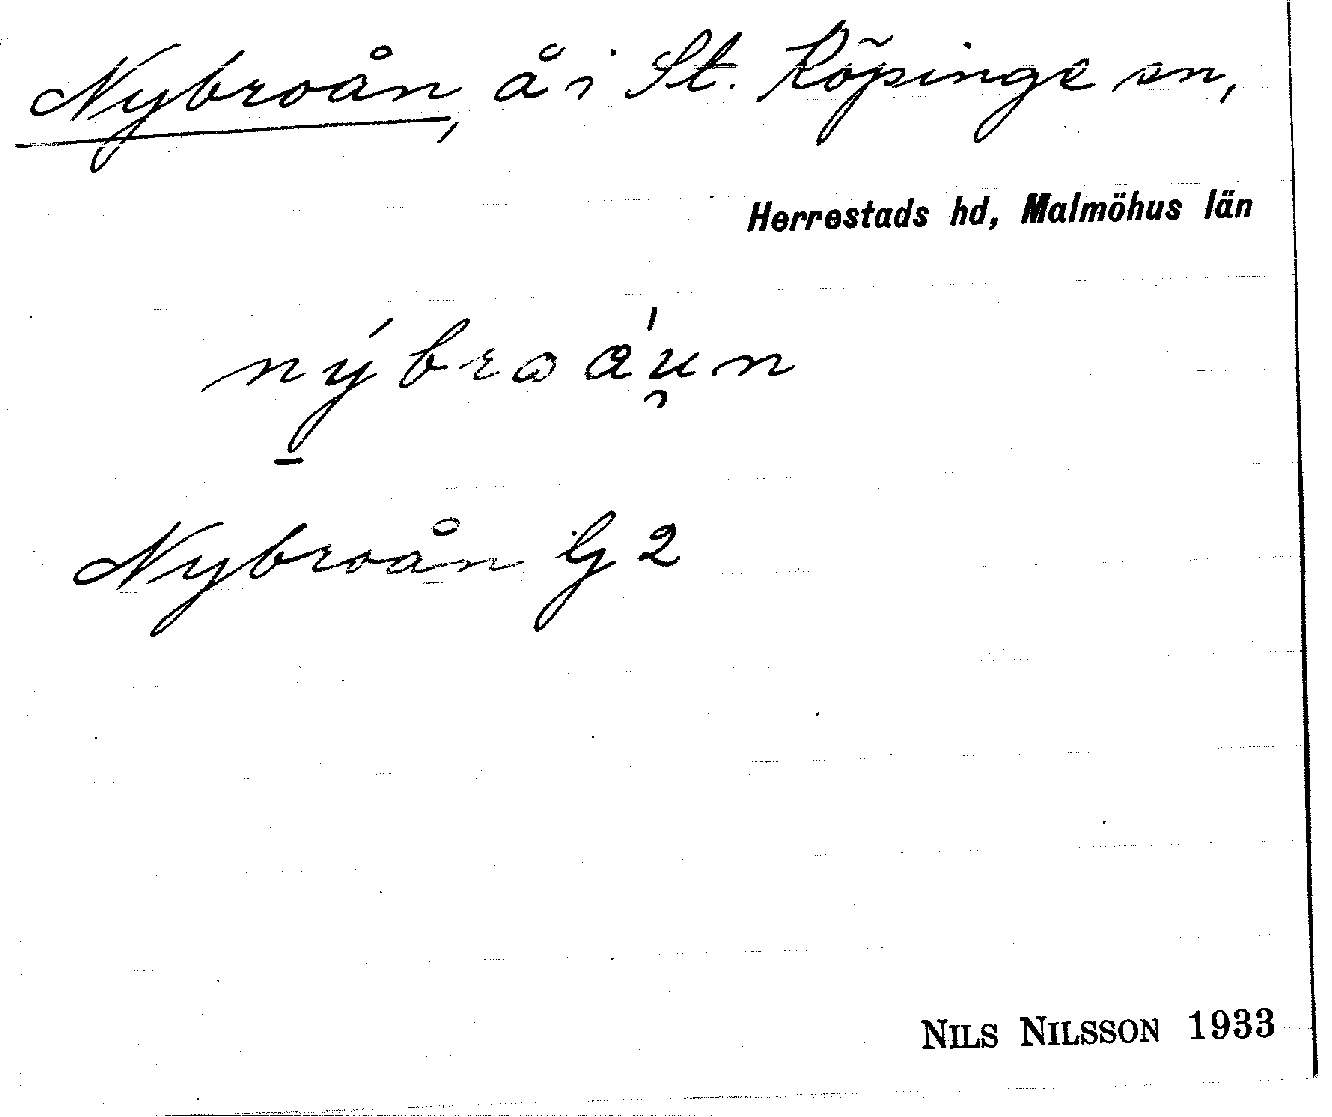 Nybroån, å i St. Köpinge sn,
Herrestads hd, Malmöhus län
nýbroáu̯n
Nybroån G 2
NILS NILSSON 1933